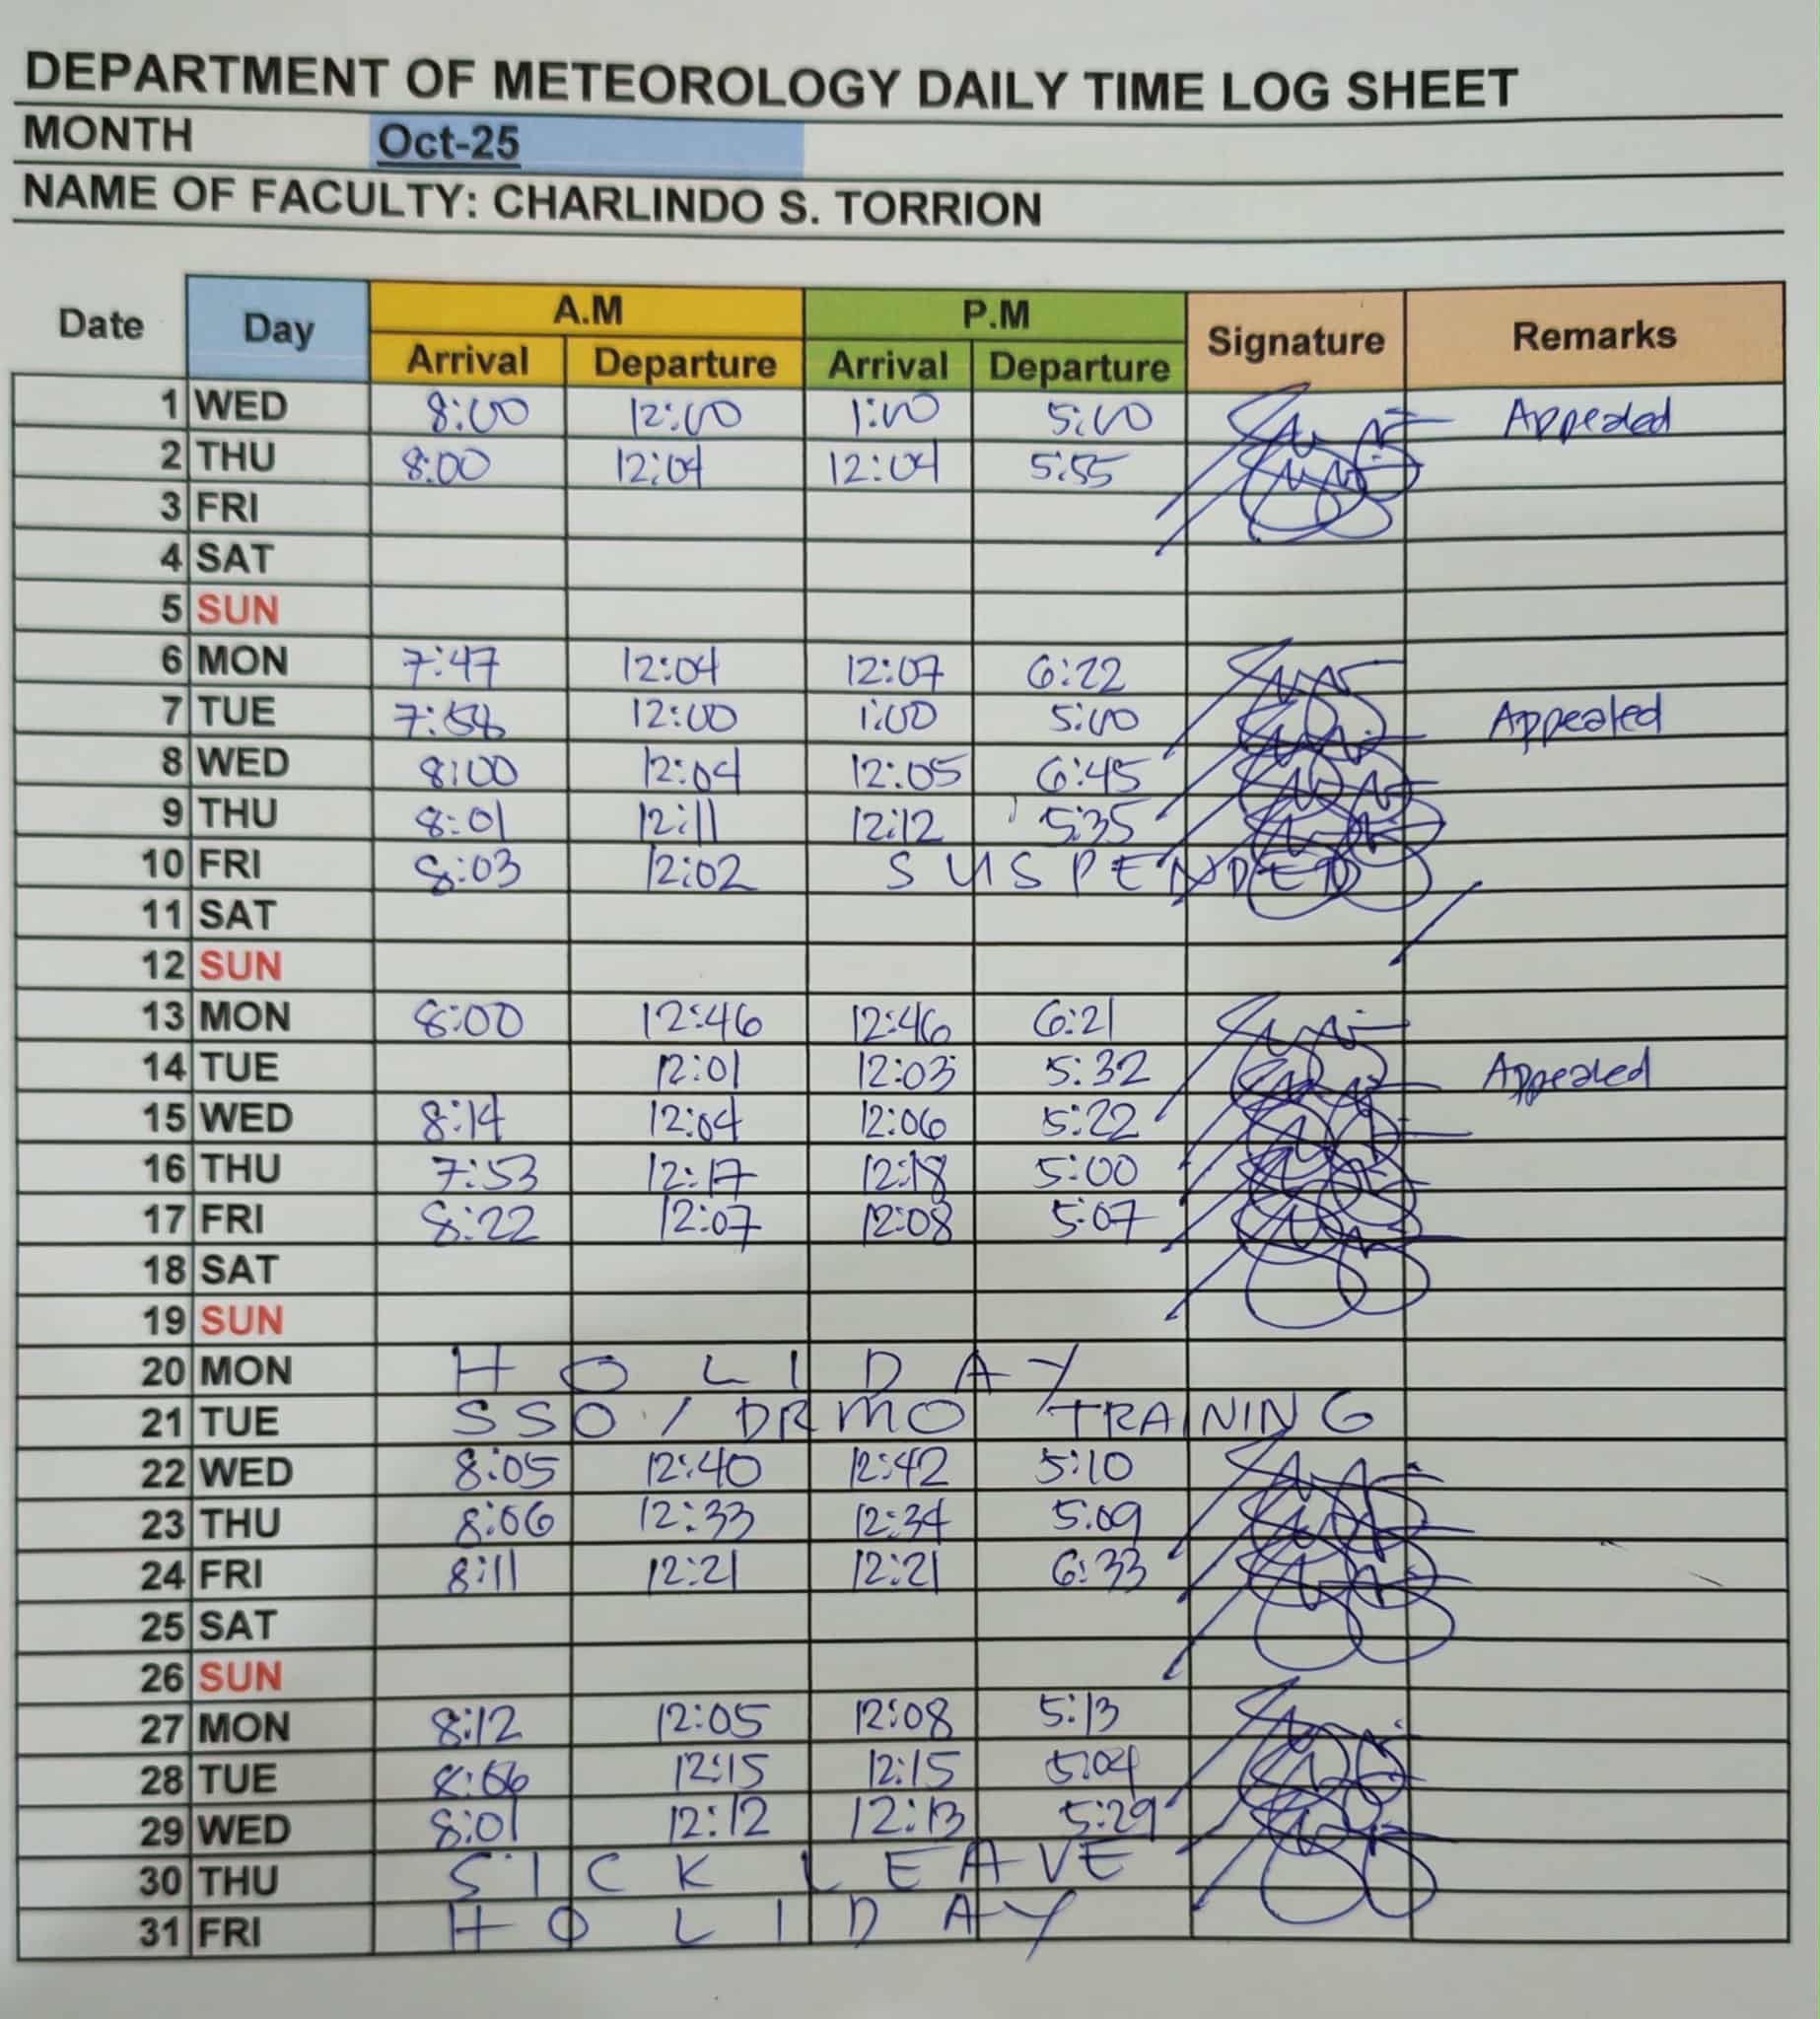 DEPARTMENT OF METEOROLOGY DAILY TIME LOG SHEET
MONTH Oct-25
NAME OF FACULTY: CHARLINDO S. TORRION
Date Day A.M P.M Signature Remarks
Arrival Departure Arrival Departure
1 WED 8:00 12:00 1:00 5:00 Appealed
2 THU 8:00 12:04 12:04 5:55
3 FRI
4 SAT
5 SUN
6 MON 7:47 12:04 12:07 6:22
7 TUE 7:58 12:00 1:00 5:00 Appealed
8 WED 8:00 12:04 12:05 6:45
9 THU 8:01 12:11 12:12 5:35
10 FRI 8:03 12:02 SUSPENDED
11 SAT
12 SUN
13 MON 8:00 12:46 12:46 6:21
14 TUE 12:01 12:03 5:32 Appealed
15 WED 8:14 12:04 12:06 5:22
16 THU 7:53 12:17 12:18 5:00
17 FRI 8:22 12:07 12:08 5:07
18 SAT
19 SUN
20 MON HOLIDAY
21 TUE SSO / DRMO TRAINING
22 WED 8:05 12:40 12:42 5:10
23 THU 8:06 12:33 12:34 5:09
24 FRI 8:11 12:21 12:21 6:33
25 SAT
26 SUN
27 MON 8:12 12:05 12:08 5:13
28 TUE 12:15 12:15 5:04
29 WED 8:01 12:12 12:13 5:29
30 THU SICK LEAVE
31 FRI HOLIDAY